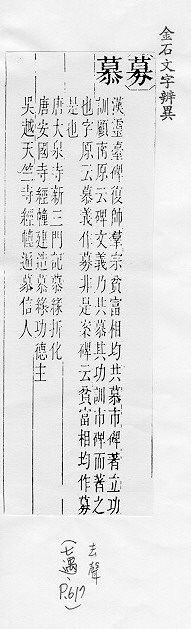 金石文字辨異
募
慕
漢靈臺碑復帥羣宗貧富相均共慕市碑著立功
訓顧南原云碑文義乃共慕其功訓市碑而著之
也字原云慕義作募非是案碑云貧富相均作募
是也
唐大泉寺新三門記慕緣折化
唐安國寺經幢建造慕緣功德主
吳越天竺寺經幢遍慕信人
去聲
(七遇、P.617)